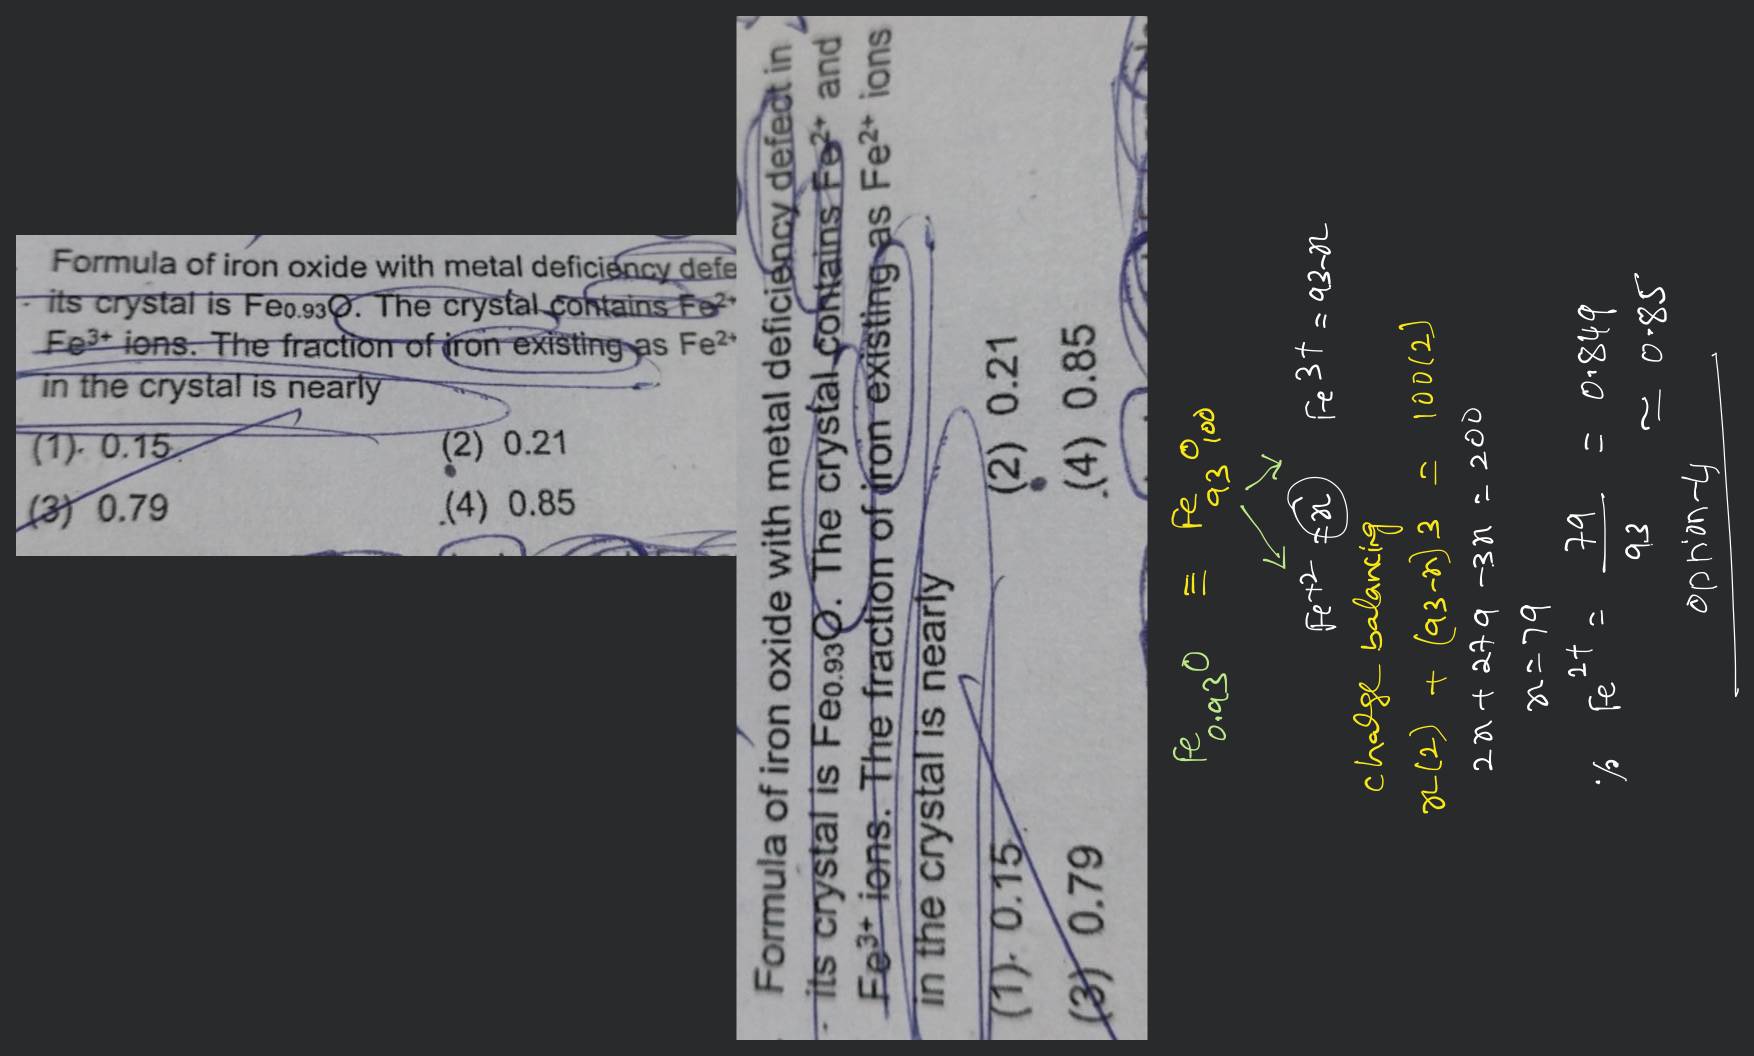 Formula of iron oxide with metal deficiency defe
its crystal is Fe0.93O. The crystal contains Fe2+
Fe3+ ions. The fraction of iron existing as Fe2+
in the crystal is nearly
(1). 0.15
(2) 0.21
(3) 0.79
(4) 0.85
Formula of iron oxide with metal deficiency defect in
its crystal is Fe0.93O. The crystal contains Fe2+ and
Fe3+ ions. The fraction of iron existing as Fe2+ ions
in the crystal is nearly
(1). 0.15
(2) 0.21
(3) 0.79
(4) 0.85
Fe0.93O ≡ Fe93O100
Fe+2 = x Fe3+ = 93-x
Charge balancing
x(2) + (93-x)3 = 100(2)
2x + 279 - 3x = 200
x = 79
% Fe2+ = 79/93 = 0.849
≃ 0.85
option-4